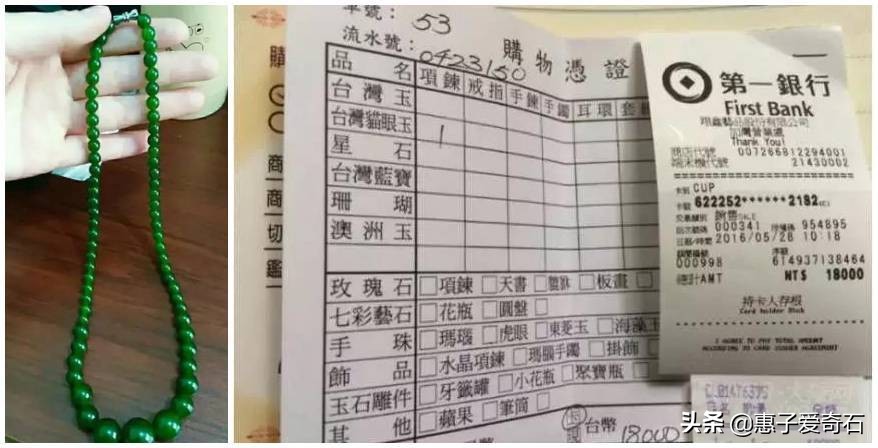 車號： 53
流水號： 0423150
購物憑證
品名 項鍊 戒指 手鍊 手鐲 耳環
台灣玉
台灣貓眼玉 1
星石
台灣藍寶
珊瑚
澳洲玉
玫瑰石 □項鍊 □天書 □ □板畫 □
七彩藝石 □花瓶 □圓盤 □
手珠 □瑪瑙 □虎眼 □東菱玉 □海藻玉
飾品 □水晶項鍊 □瑪腦手鐲 □掛飾 □
玉石雕件 □牙籤罐 □小花瓶 □聚寶瓶 □
其他 □蘋果 □筆筒 □
台幣 18000
購
商
商
切
鑑
第一銀行
First Bank
Thank You!
商店代號 007266812294001
端末機代號 21430002
卡別 CUP
卡號 622252******2182
交易類別 銷售SALE
批次號碼 000341 954895
日期/時間 2016/05/28 10:18
000998 614937138464
總計AMT NT$ 18000
持卡人存根
Card holder
I AGREE TO PAY TOTAL AMOUNT
ACCORDING TO CARD ISSUER AGREEMENT
头条 @惠子爱奇石